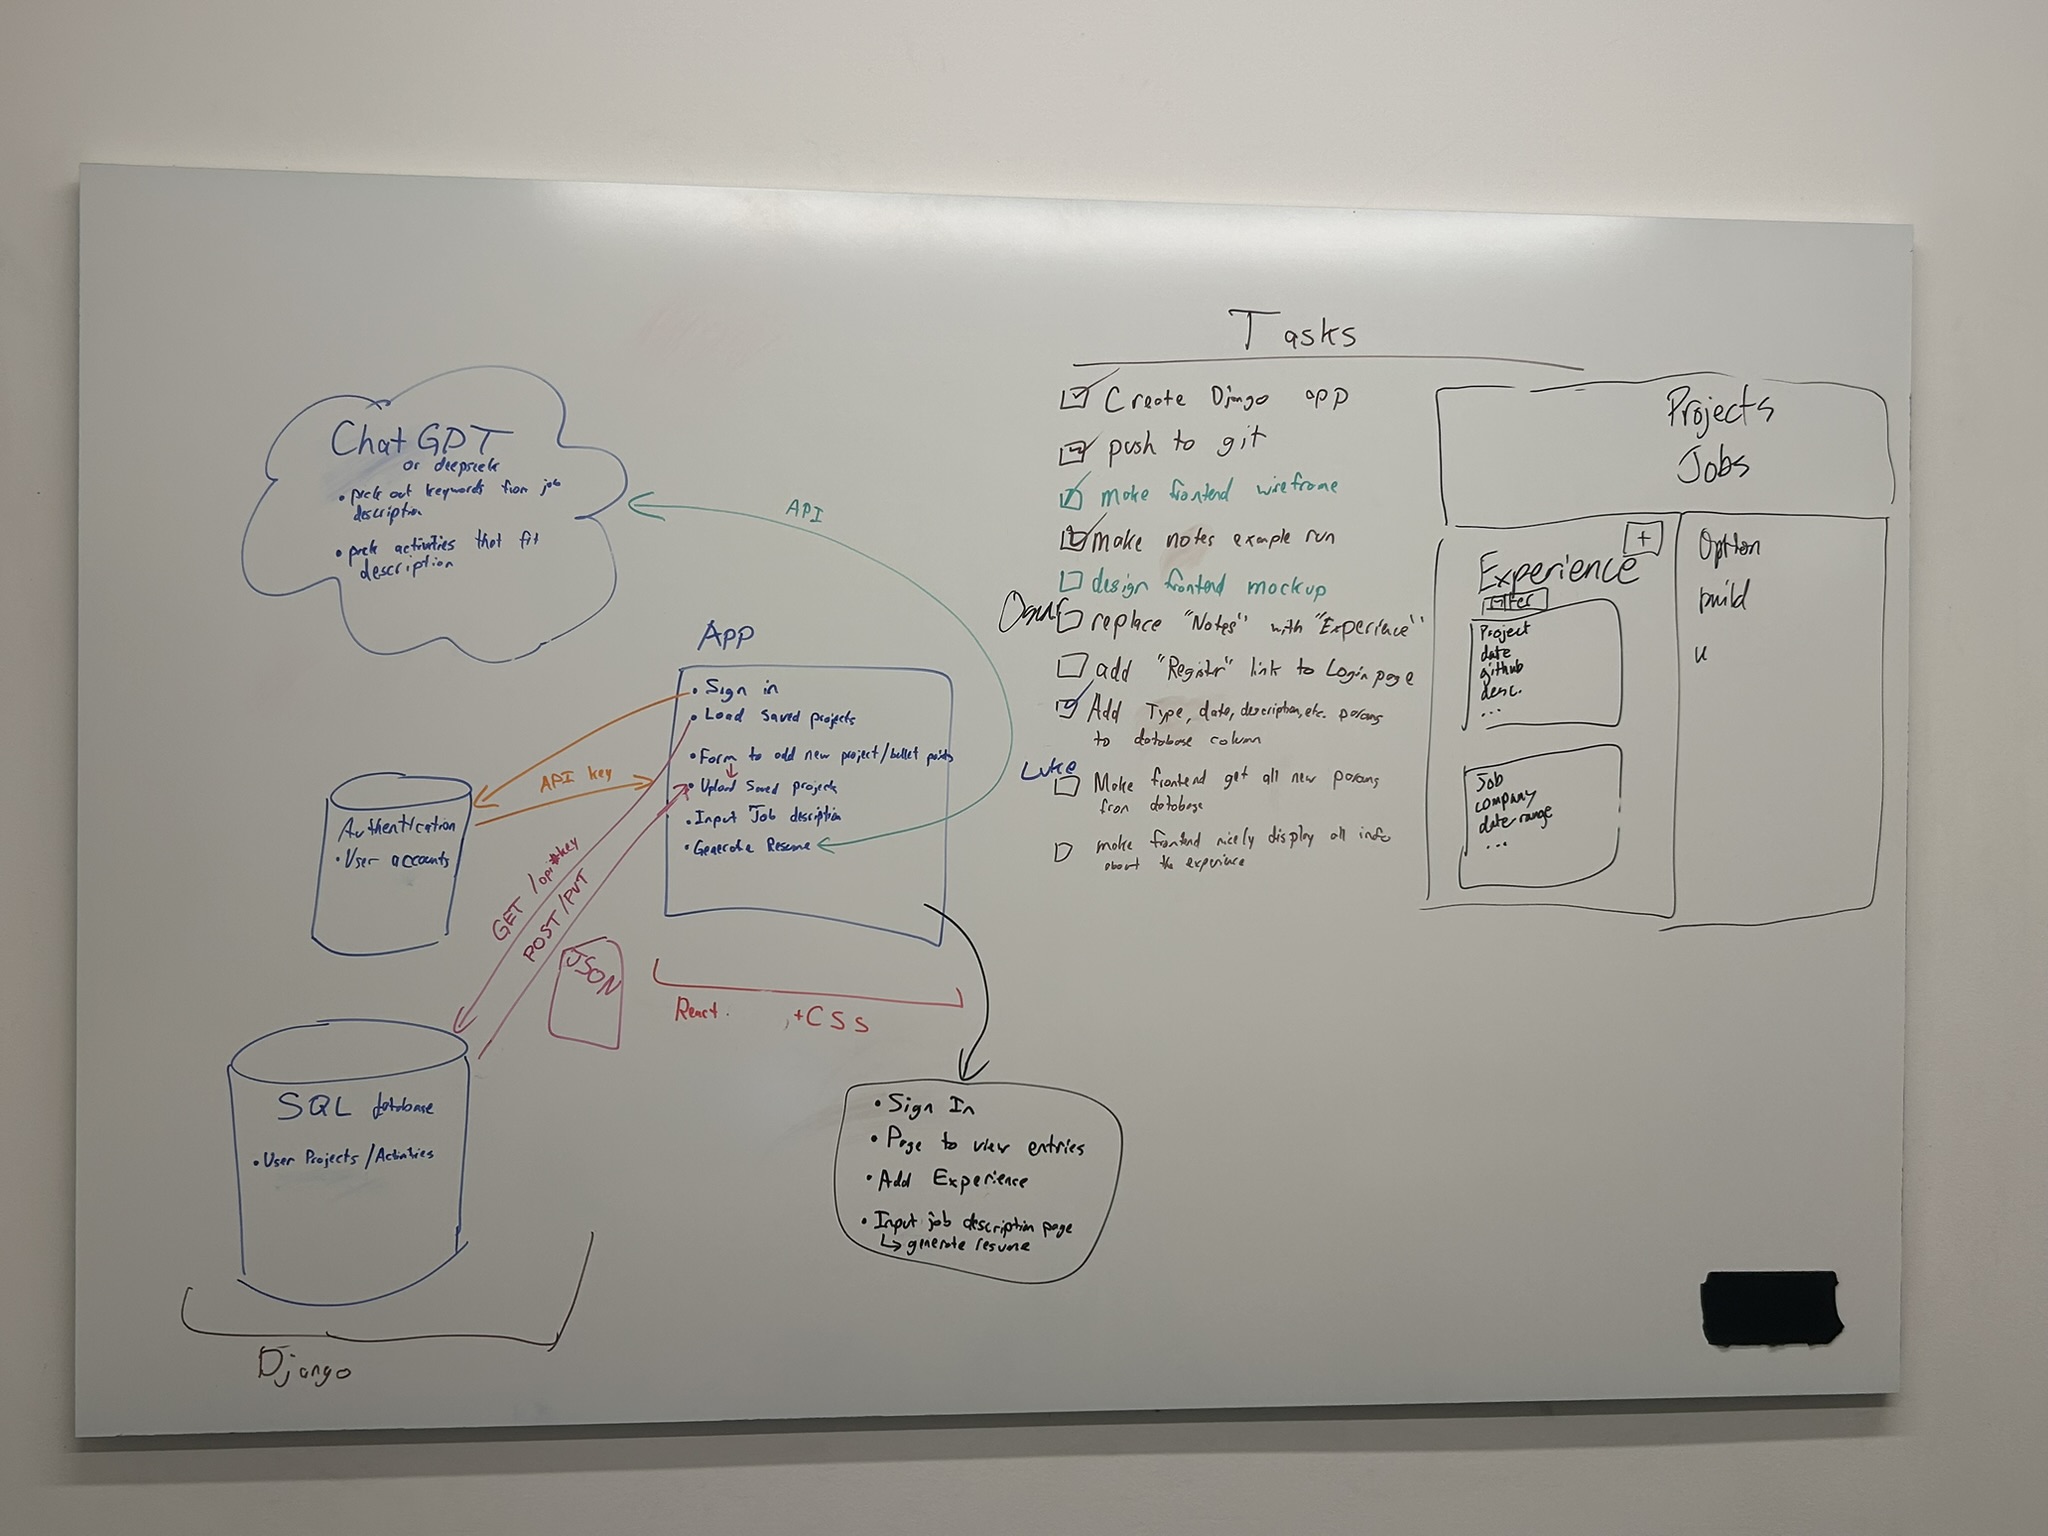 Chat GPT
or deepseek
• pick out keywords from job
description
• pick activities that fit
description
API
App
• Sign in
• Load saved projects
• Form to add new project/bullet points
• Upload saved projects
• Input Job description
• Generate Resume
API key
Authentication
• User accounts
GET /api key
POST /PUT
JSON
React
,+CSS
SQL database
• User Projects /Activities
Django
• Sign In
• Page to view entries
• Add Experience
• Input job description page
↳ generate resume
Tasks
Create Django app
push to git
make frontend wireframe
make notes example run
design frontend mockup
replace "Notes" with "Experience"
add "Register" link to Login page
Add Type, date, description, etc. params
to database column
Luke
Make frontend get all new params
from database
make frontend nicely display all info
about the experience
Projects
Jobs
+
Experience
filter
Project
date
github
desc.
...
Job
company
date range
...
Option
build